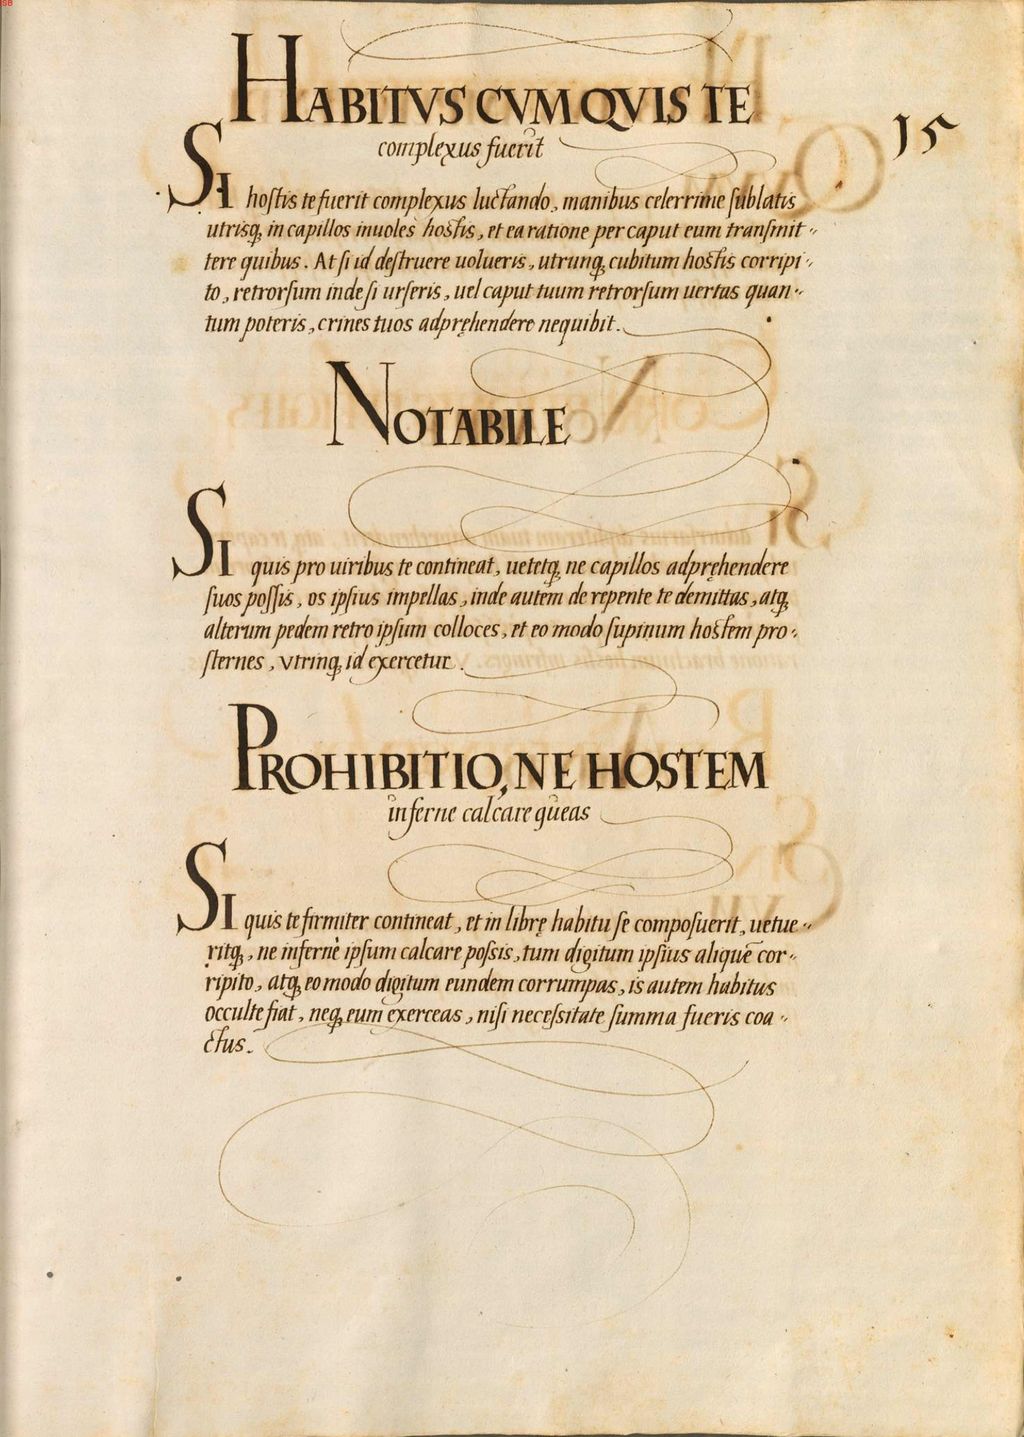 HABITVS CVM QVIS TE
complexus fuerit
15
SI hostis te fuerit complexus luctando, manibus celerrime sublatis
utrisq, in capillos inuoles hostis, et ea ratione per caput eum transmit-
tere quibus. At si id destruere uolueris, utrunq, cubitum hostis corripi-
to, retrorsum inde si urseris, uel caput tuum retrorsum uertas quan-
tum poteris, crines tuos adpręhendere nequibit.
NOTABILE
SI quis pro uiribus te contineat, uetetq, ne capillos adpręhendere
suos possis, os ipsius impellas, inde autem de repente te demittas, atq,
alterum pedem retro ipsum colloces, et eo modo supinum hostem pro-
sternes, vtrinq, id exercetur.
PROHIBITIO, NE HOSTEM
inferne calcare queas
SI quis te firmiter contineat, et in librę habitu se composuerit, uetue-
ritq, ne infernè ipsum calcare possis, tum digitum ipsius aliquē cor-
ripito, atq, eo modo digitum eundem corrumpas, is autem habitus
occulte fiat, neq, eum exerceas, nisi necessitate summa fueris coa-
ctus.